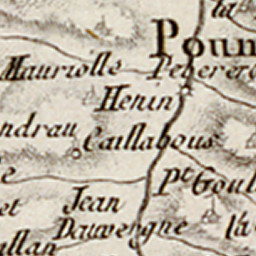 la
Poum
Mauriolle Peberer
Henin
ndrau
Caillabous
pt. Goul
Jean
Dauvergne
la
et
llan